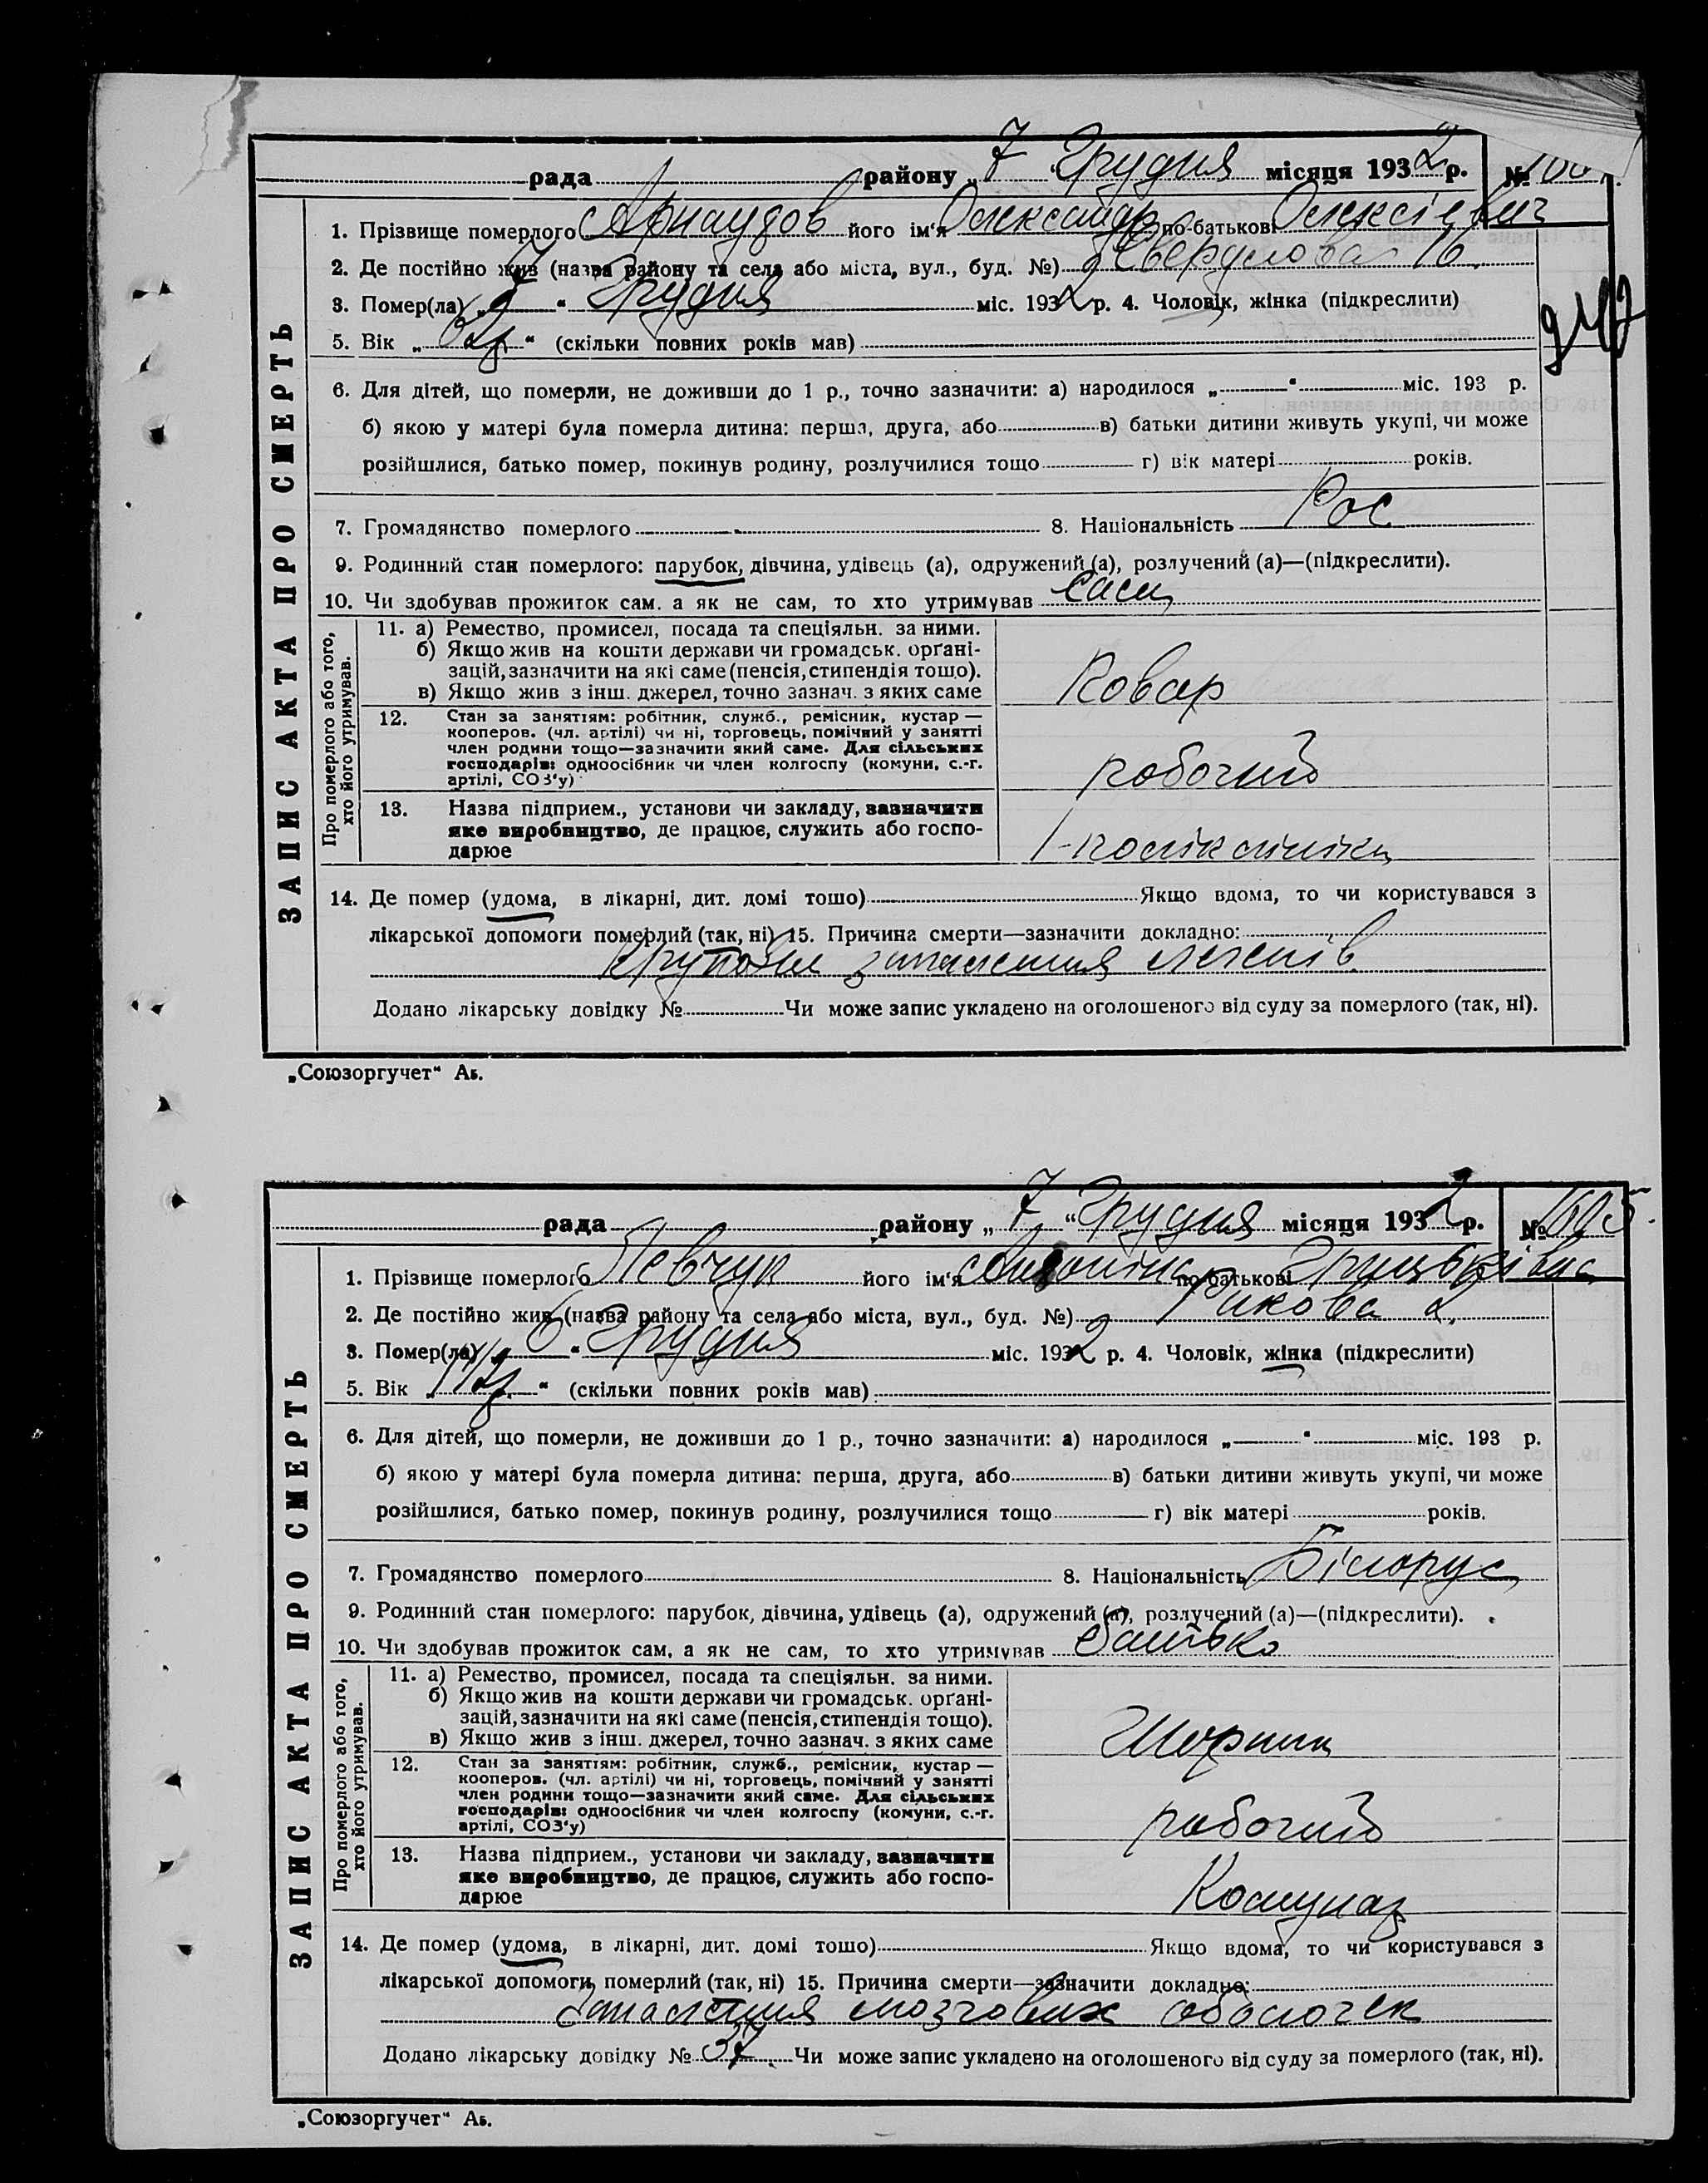 рада району „7“ Грудня місяця 1932 р. №
ЗАПИС АКТА ПРО СМЕРТЬ
1. Прізвище померлого Арнаудов його ім'я Олександр по-батькові Олексієвич
2. Де постійно жив (назва району та села або міста, вул., буд. №) Свердлова 16
3. Помер(ла) „7“ Грудня міс. 1932 р. 4. Чоловік, жінка (підкреслити)
5. Вік „ “ (скільки повних років мав)
6. Для дітей, що померли, не доживши до 1 р., точно зазначити: а) народилося „ “ міс. 193 р.
б) якою у матері була померла дитина: перша, друга, або в) батьки дитини живуть укупі, чи може
розійшлися, батько помер, покинув родину, розлучилися тощо г) вік матері років.
7. Громадянство померлого 8. Національність Рос
9. Родинний стан померлого: парубок, дівчина, удівець (а), одружений (а), розлучений (а)—(підкреслити).
10. Чи здобував прожиток сам, а як не сам, то хто утримував сам
Про померлого або того, хто його утримував.
11. а) Ремество, промисел, посада та спеціяльн. за ними.
б) Якщо жив на кошти держави чи громадськ. орґані-
зацій, зазначити на які саме (пенсія, стипендія тощо).
в) Якщо жив з інш. джерел, точно зазнач. з яких саме
Ковар
12. Стан за заняттям: робітник, служб., ремісник, кустар —
кооперов. (чл. артілі) чи ні, торговець, помічний у занятті
член родини тощо—зазначити який саме. Для сільських
господарів: одноосібник чи член колгоспу (комуни, с.-г.
артілі, СОЗ'у)
робочий
13. Назва підприєм., установи чи закладу, зазначити
яке виробництво, де працює, служить або госпо-
дарює
1-поліклініка
14. Де помер (удома, в лікарні, дит. домі тощо) Якщо вдома, то чи користувався з
лікарської допомоги померлий (так, ні) 15. Причина смерти—зазначити докладно:
Крупозне запалення легенів
Додано лікарську довідку № Чи може запис укладено на оголошеного від суду за померлого (так, ні).
„Союзоргучет“ Аб.
рада району „7“ Грудня місяця 1932 р. № 1605.
ЗАПИС АКТА ПРО СМЕРТЬ
1. Прізвище померлого Левчук його ім'я Антоніна по-батькові Грицьківна
2. Де постійно жив (назва району та села або міста, вул., буд. №) Рикова 2
3. Помер(ла) „6“ Грудня міс. 1932 р. 4. Чоловік, жінка (підкреслити)
5. Вік „ “ (скільки повних років мав)
6. Для дітей, що померли, не доживши до 1 р., точно зазначити: а) народилося „ “ міс. 193 р.
б) якою у матері була померла дитина: перша, друга, або в) батьки дитини живуть укупі, чи може
розійшлися, батько помер, покинув родину, розлучилися тощо г) вік матері років.
7. Громадянство померлого 8. Національність Білорус
9. Родинний стан померлого: парубок, дівчина, удівець (а), одружений (а), розлучений (а)—(підкреслити).
10. Чи здобував прожиток сам, а як не сам, то хто утримував батько
Про померлого або того, хто його утримував.
11. а) Ремество, промисел, посада та спеціяльн. за ними.
б) Якщо жив на кошти держави чи громадськ. орґані-
зацій, зазначити на які саме (пенсія, стипендія тощо).
в) Якщо жив з інш. джерел, точно зазнач. з яких саме
Шорник
12. Стан за заняттям: робітник, служб., ремісник, кустар —
кооперов. (чл. артілі) чи ні, торговець, помічний у занятті
член родини тощо—зазначити який саме. Для сільських
господарів: одноосібник чи член колгоспу (комуни, с.-г.
артілі, СОЗ'у)
робочий
13. Назва підприєм., установи чи закладу, зазначити
яке виробництво, де працює, служить або госпо-
дарює
Комунаг
14. Де помер (удома, в лікарні, дит. домі тощо) Якщо вдома, то чи користувався з
лікарської допомоги померлий (так, ні) 15. Причина смерти—зазначити докладно:
Запалення мозгових оболочек
Додано лікарську довідку № 37 Чи може запис укладено на оголошеного від суду за померлого (так, ні).
„Союзоргучет“ Аб.